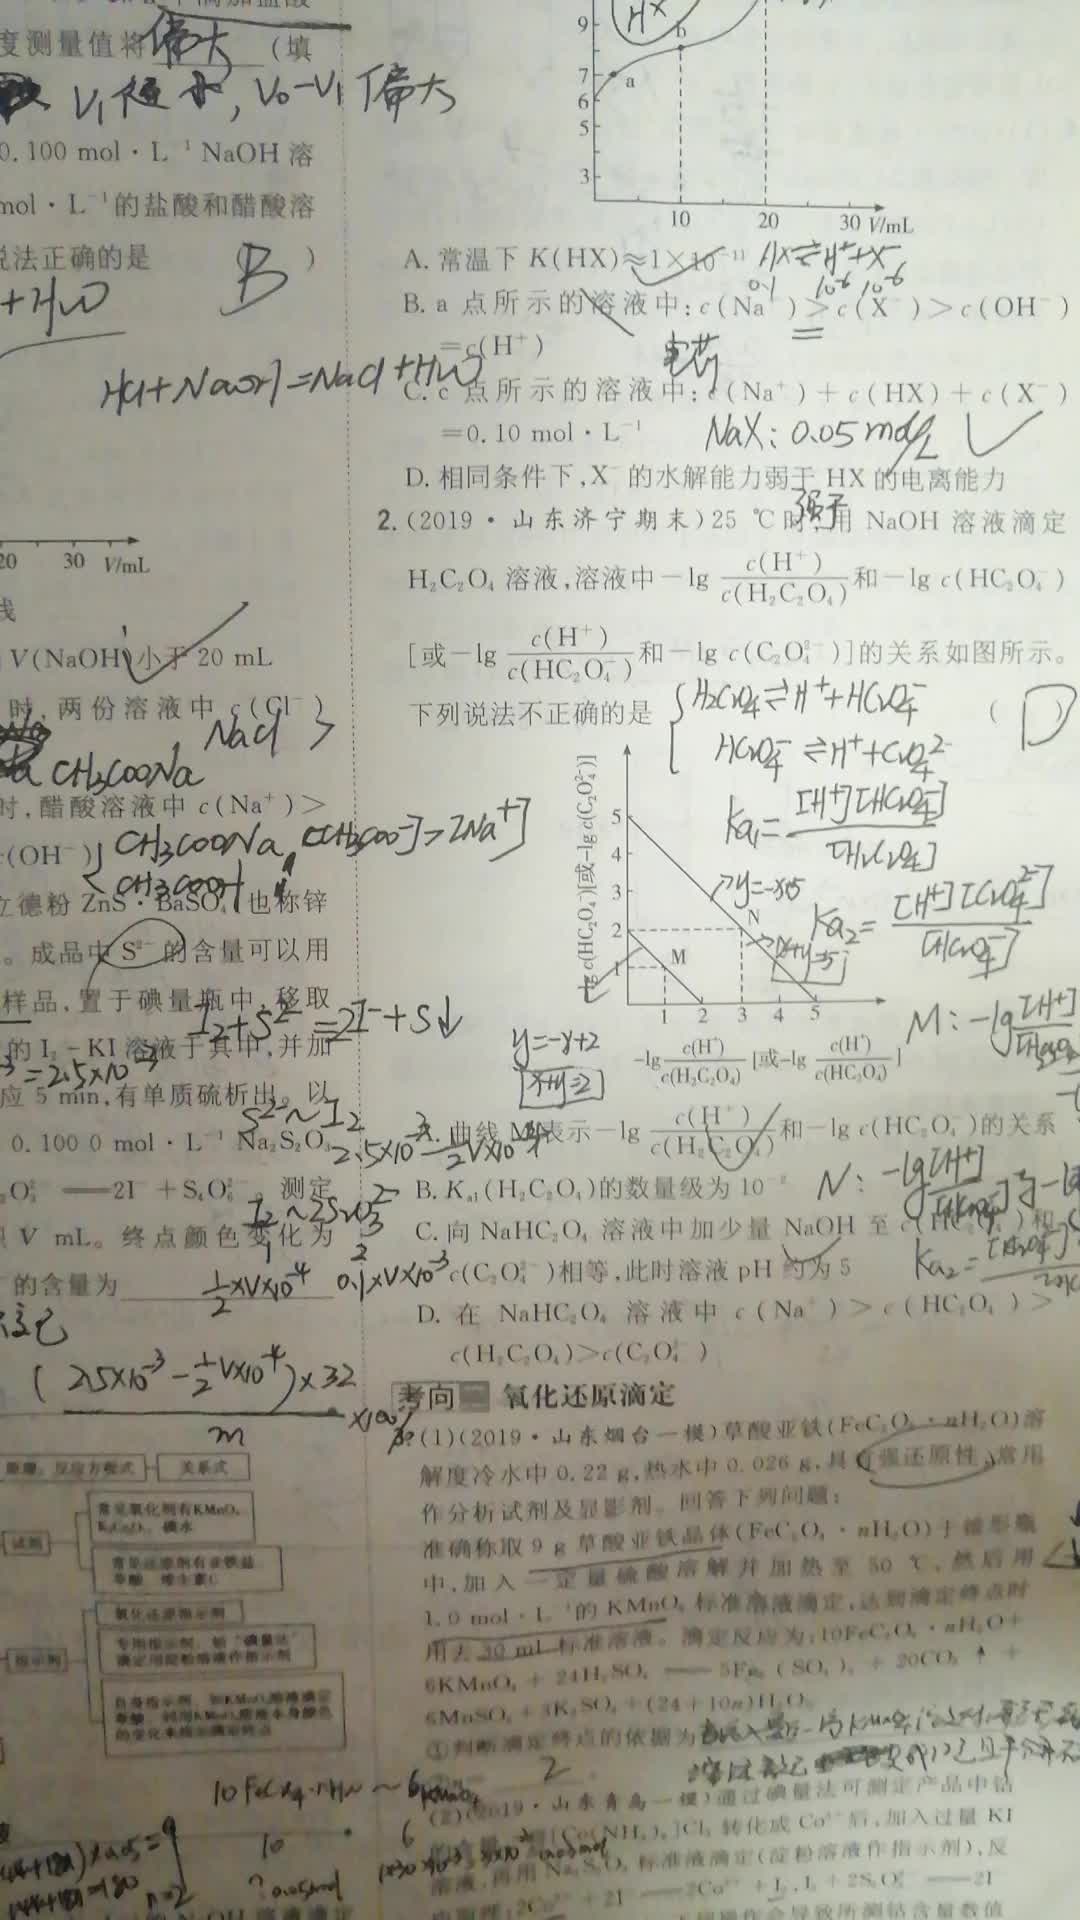 度测量值将 偏大 (填
V₀-V₁偏大
0.100 mol·L⁻¹ NaOH 溶
mol·L⁻¹的盐酸和醋酸溶
说法正确的是 ( B )
+H₂O
HCl+NaOH=NaCl+H₂O
20 30 V/mL
线
V(NaOH)小于 20 mL
时,两份溶液中 c(Cl⁻)
NaCl >
CH₃COONa
时,醋酸溶液中 c(Na⁺)>
c(OH⁻)
CH₃COONa [CH₃COO⁻]>[Na⁺]
CH₃COOH
立德粉 ZnS·BaSO₄ 也称锌
。成品中 S²⁻ 的含量可以用
样品,置于碘量瓶中,移取
I₂+S²⁻=2I⁻+S↓
的 I₂-KI 溶液于其中,并加
=2.5×10⁻³
应 5 min,有单质硫析出。以
S²⁻~I₂
0.100 0 mol·L⁻¹ Na₂S₂O₃
2.5×10⁻³-½V×10⁻⁴
2I⁻+S₄O₆²⁻。测定
I₂~2S₂O₃²⁻
1 2
V mL。终点颜色变化为
的含量为
½×V×10⁻⁴ 0.1×V×10⁻³
(2.5×10⁻³-½V×10⁻⁴)×32
m
×100%
关系式
试剂
常见氧化剂有KMnO₄、
K₂Cr₂O₇、碘水
常见还原剂有亚铁盐、
草酸、维生素C
指示剂
氧化还原指示剂
专用指示剂,如“碘量法”
滴定用淀粉溶液作指示剂
10FeC₂O₄·nH₂O~6KMnO₄
10 6
n=2
HX
9
7
6
5
3
a
b
10 20 30 V/mL
A. 常温下 K(HX)≈1×10⁻¹¹
HX⇌H⁺+X⁻
0.1 10⁻⁶ 10⁻⁶
B. a 点所示的溶液中:c(Na⁺)>c(X⁻)>c(OH⁻)
=c(H⁺)
=
电荷
C. c 点所示的溶液中:c(Na⁺)+c(HX)+c(X⁻)
=0.10 mol·L⁻¹
NaX:0.05mol/L
D. 相同条件下,X⁻的水解能力弱于 HX 的电离能力
强于
2. (2019·山东济宁期末)25 ℃时,用 NaOH 溶液滴定
H₂C₂O₄ 溶液,溶液中-lg c(H⁺)/c(H₂C₂O₄) 和-lg c(HC₂O₄⁻)
[或-lg c(H⁺)/c(HC₂O₄⁻) 和-lg c(C₂O₄²⁻)]的关系如图所示。
下列说法不正确的是 ( D )
H₂C₂O₄⇌H⁺+HC₂O₄⁻
HC₂O₄⁻⇌H⁺+C₂O₄²⁻
Ka₁=[H⁺][HC₂O₄⁻]/[H₂C₂O₄]
Ka₂=[H⁺][C₂O₄²⁻]/[HC₂O₄⁻]
-lg c(HC₂O₄⁻)[或-lg c(C₂O₄²⁻)]
5
4
3
2
1
M
N
y=-x+5
x+y=5
1 2 3 4 5
y=-x+2
x+y=2
-lg c(H⁺)/c(H₂C₂O₄) [或-lg c(H⁺)/c(HC₂O₄⁻)]
M:-lg[H⁺]
A. 曲线 M 表示-lg c(H⁺)/c(H₂C₂O₄) 和-lg c(HC₂O₄⁻)的关系
B. Ka₁(H₂C₂O₄)的数量级为 10⁻²
N:-lg[H⁺]/[HC₂O₄⁻]
C. 向 NaHC₂O₄ 溶液中加少量 NaOH 至 c(HC₂O₄⁻)和
c(C₂O₄²⁻)相等,此时溶液 pH 约为 5
D. 在 NaHC₂O₄ 溶液中 c(Na⁺)>c(HC₂O₄⁻)>
c(H₂C₂O₄)>c(C₂O₄²⁻)
考向二 氧化还原滴定
3. (1)(2019·山东烟台一模)草酸亚铁(FeC₂O₄·nH₂O)溶
解度冷水中 0.22 g,热水中 0.026 g,具有强还原性,常用
作分析试剂及显影剂。回答下列问题:
准确称取 9 g 草酸亚铁晶体(FeC₂O₄·nH₂O)于锥形瓶
中,加入一定量硫酸溶解并加热至 50 ℃,然后用
1.0 mol·L⁻¹的 KMnO₄ 标准溶液滴定,达到滴定终点时
用去 30 mL 标准溶液。滴定反应为:10FeC₂O₄·nH₂O+
6KMnO₄+24H₂SO₄══5Fe₂(SO₄)₃+20CO₂↑+
6MnSO₄+3K₂SO₄+(24+10n)H₂O。
①判断滴定终点的依据为
2
(2)(2019·山东青岛一模)通过碘量法可测定产品中钴
[Co(NH₃)₆]Cl₃ 转化成 Co³⁺后,加入过量 KI
再用 Na₂S₂O₃ 标准液滴定(淀粉溶液作指示剂),反
2Co³⁺+2I⁻══2Co²⁺+I₂,I₂+2S₂O₃²⁻══2I⁻